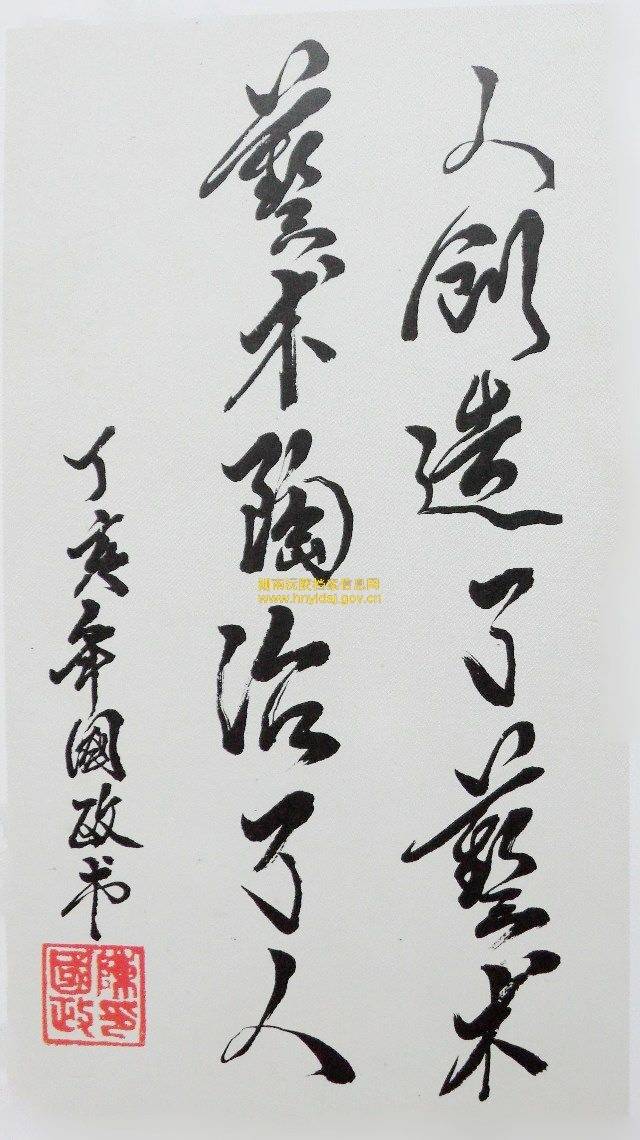 人创造了藝术
藝术陶冶了人
丁亥年国政书
陳國政印
湖南沅陵档案信息网
www.hnyldaj.gov.cn